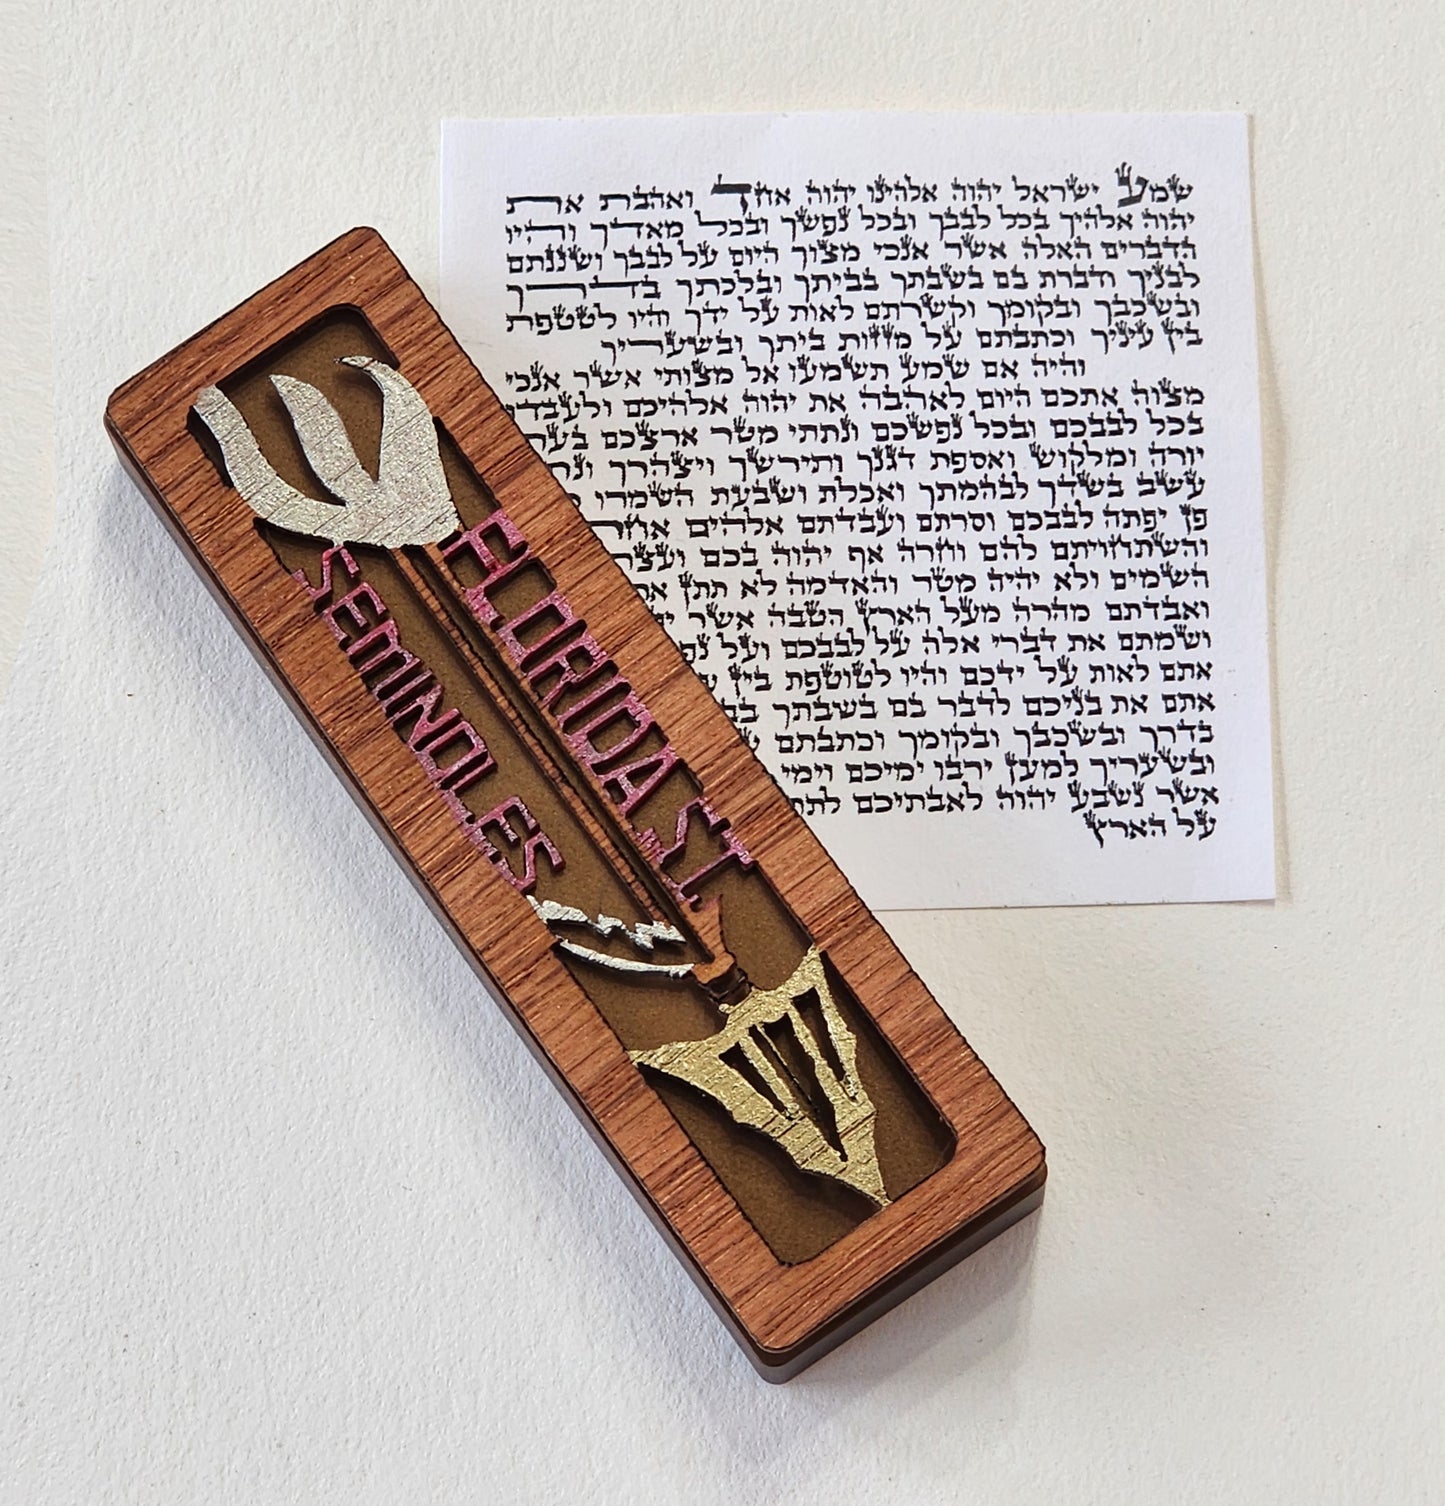 שמע ישראל יהוה אלהינו יהוה אחד ואהבת את
יהוה אלהיך בכל לבבך ובכל נפשך ובכל מאדך והיו
הדברים האלה אשר אנכי מצוך היום על לבבך ושננתם
לבניך ודברת בם בשבתך בביתך ובלכתך בדרך
ובשכבך ובקומך וקשרתם לאות על ידך והיו לטטפת
בין עיניך וכתבתם על מזזות ביתך ובשעריך
והיה אם שמע תשמעו אל מצותי אשר אנכי
מצוה אתכם היום לאהבה את יהוה אלהיכם ולעבדו
בכל לבבכם ובכל נפשכם ונתתי מטר ארצכם
יורה ומלקוש ואספת דגנך ותירשך ויצהרך
עשב בשדך לבהמתך ואכלת ושבעת השמרו
פן יפתה לבבכם וסרתם ועבדתם אלהים
והשתחויתם להם וחרה אף יהוה בכם ועצר
השמים ולא יהיה מטר והאדמה לא תתן את
ואבדתם מהרה מעל הארץ הטבה אשר
ושמתם את דברי אלה על לבבכם ועל
אתם לאות על ידכם והיו לטוטפת בין
אתם את בניכם לדבר בם בשבתך
בדרך ובשכבך ובקומך וכתבתם
ובשעריך למען ירבו ימיכם וימי
אשר נשבע יהוה לאבתיכם לתת
על הארץ
ש
FLORIDA ST
SEMINOLES
ש